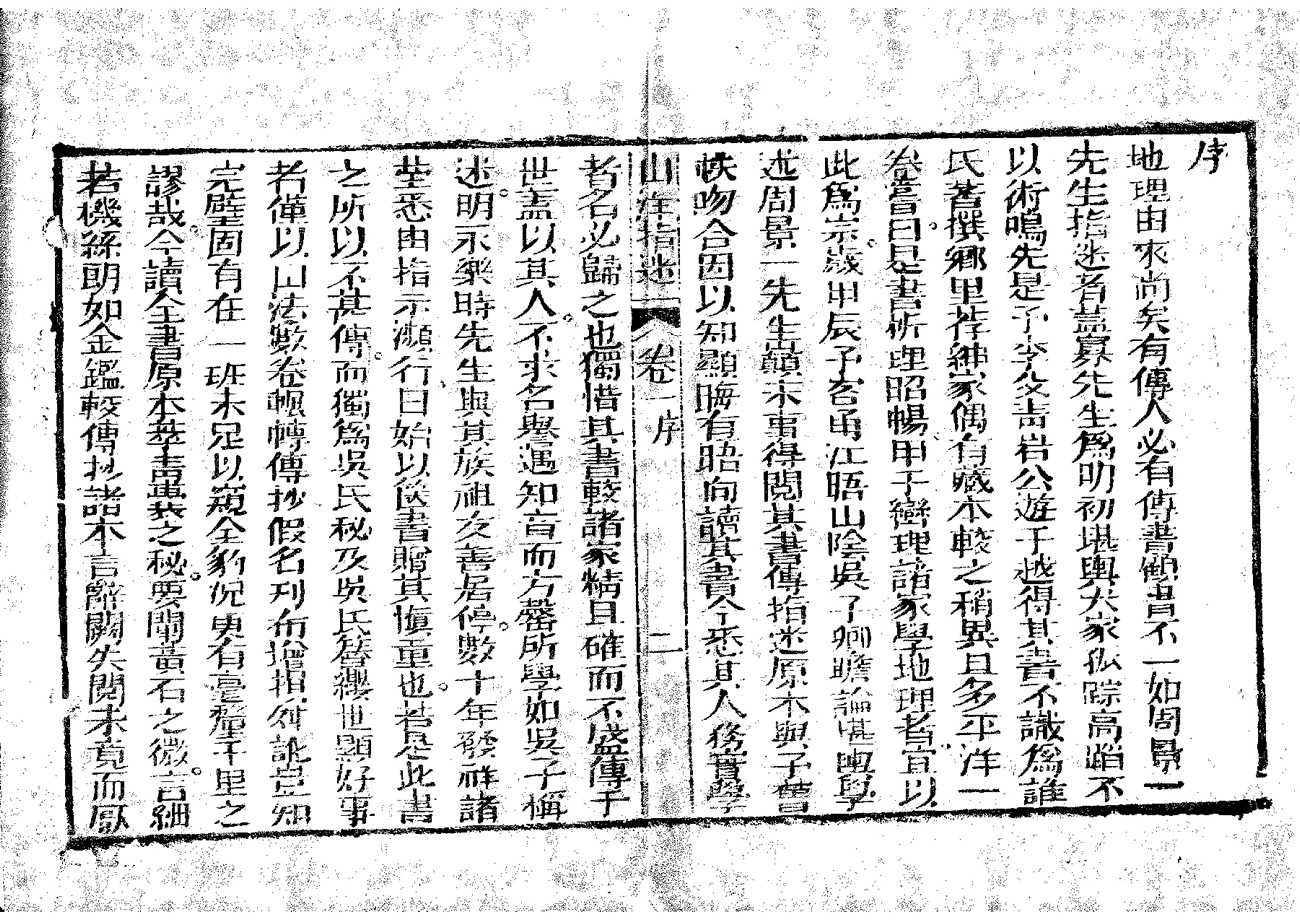 序
地理由來尚矣有傳人必有傳書顧書不一如周景一
先生指迷者蓋寡先生爲明初堪輿大家弘踪高蹈不
以術鳴先是予季父青岩公遊于越得其書不識爲誰
氏著撰鄉里荐紳家偶有藏本較之稍異且多平洋一
卷嘗曰是書析理昭暢甲于巒理諸家學地理者宜以
此爲宗歲甲辰予客甬江晤山陰吳子卿瞻論堪輿學
述周景一先生顛末事得閱其書傳指迷原本與予曾
帙吻合因以知顯晦有時向讀其書今悉其人務實學
山洋指迷 卷一 序 二
者名必歸之也獨惜其書較諸家精且確而不盛傳于
世盖以其人不求名譽遇知音而方罄所學如吳子稱
述明永樂時先生與其族祖友善居停數十年發祥諸
塋悉由指示瀕行日始以佚書贈其愼重也若是此書
之所以不甚傳而獨爲吳氏秘及吳氏簪纓世顯好事
者僅以山法數卷輾轉傳抄假名刋布增損舛訛豈知
完璧固有在一班未足以窺全豹况更有毫釐千里之
謬哉今讀全書原本萃青囊之秘要闡黃石之微言細
若機絲朗如金鑑較傳抄諸本言辭闕失閱未竟而厭